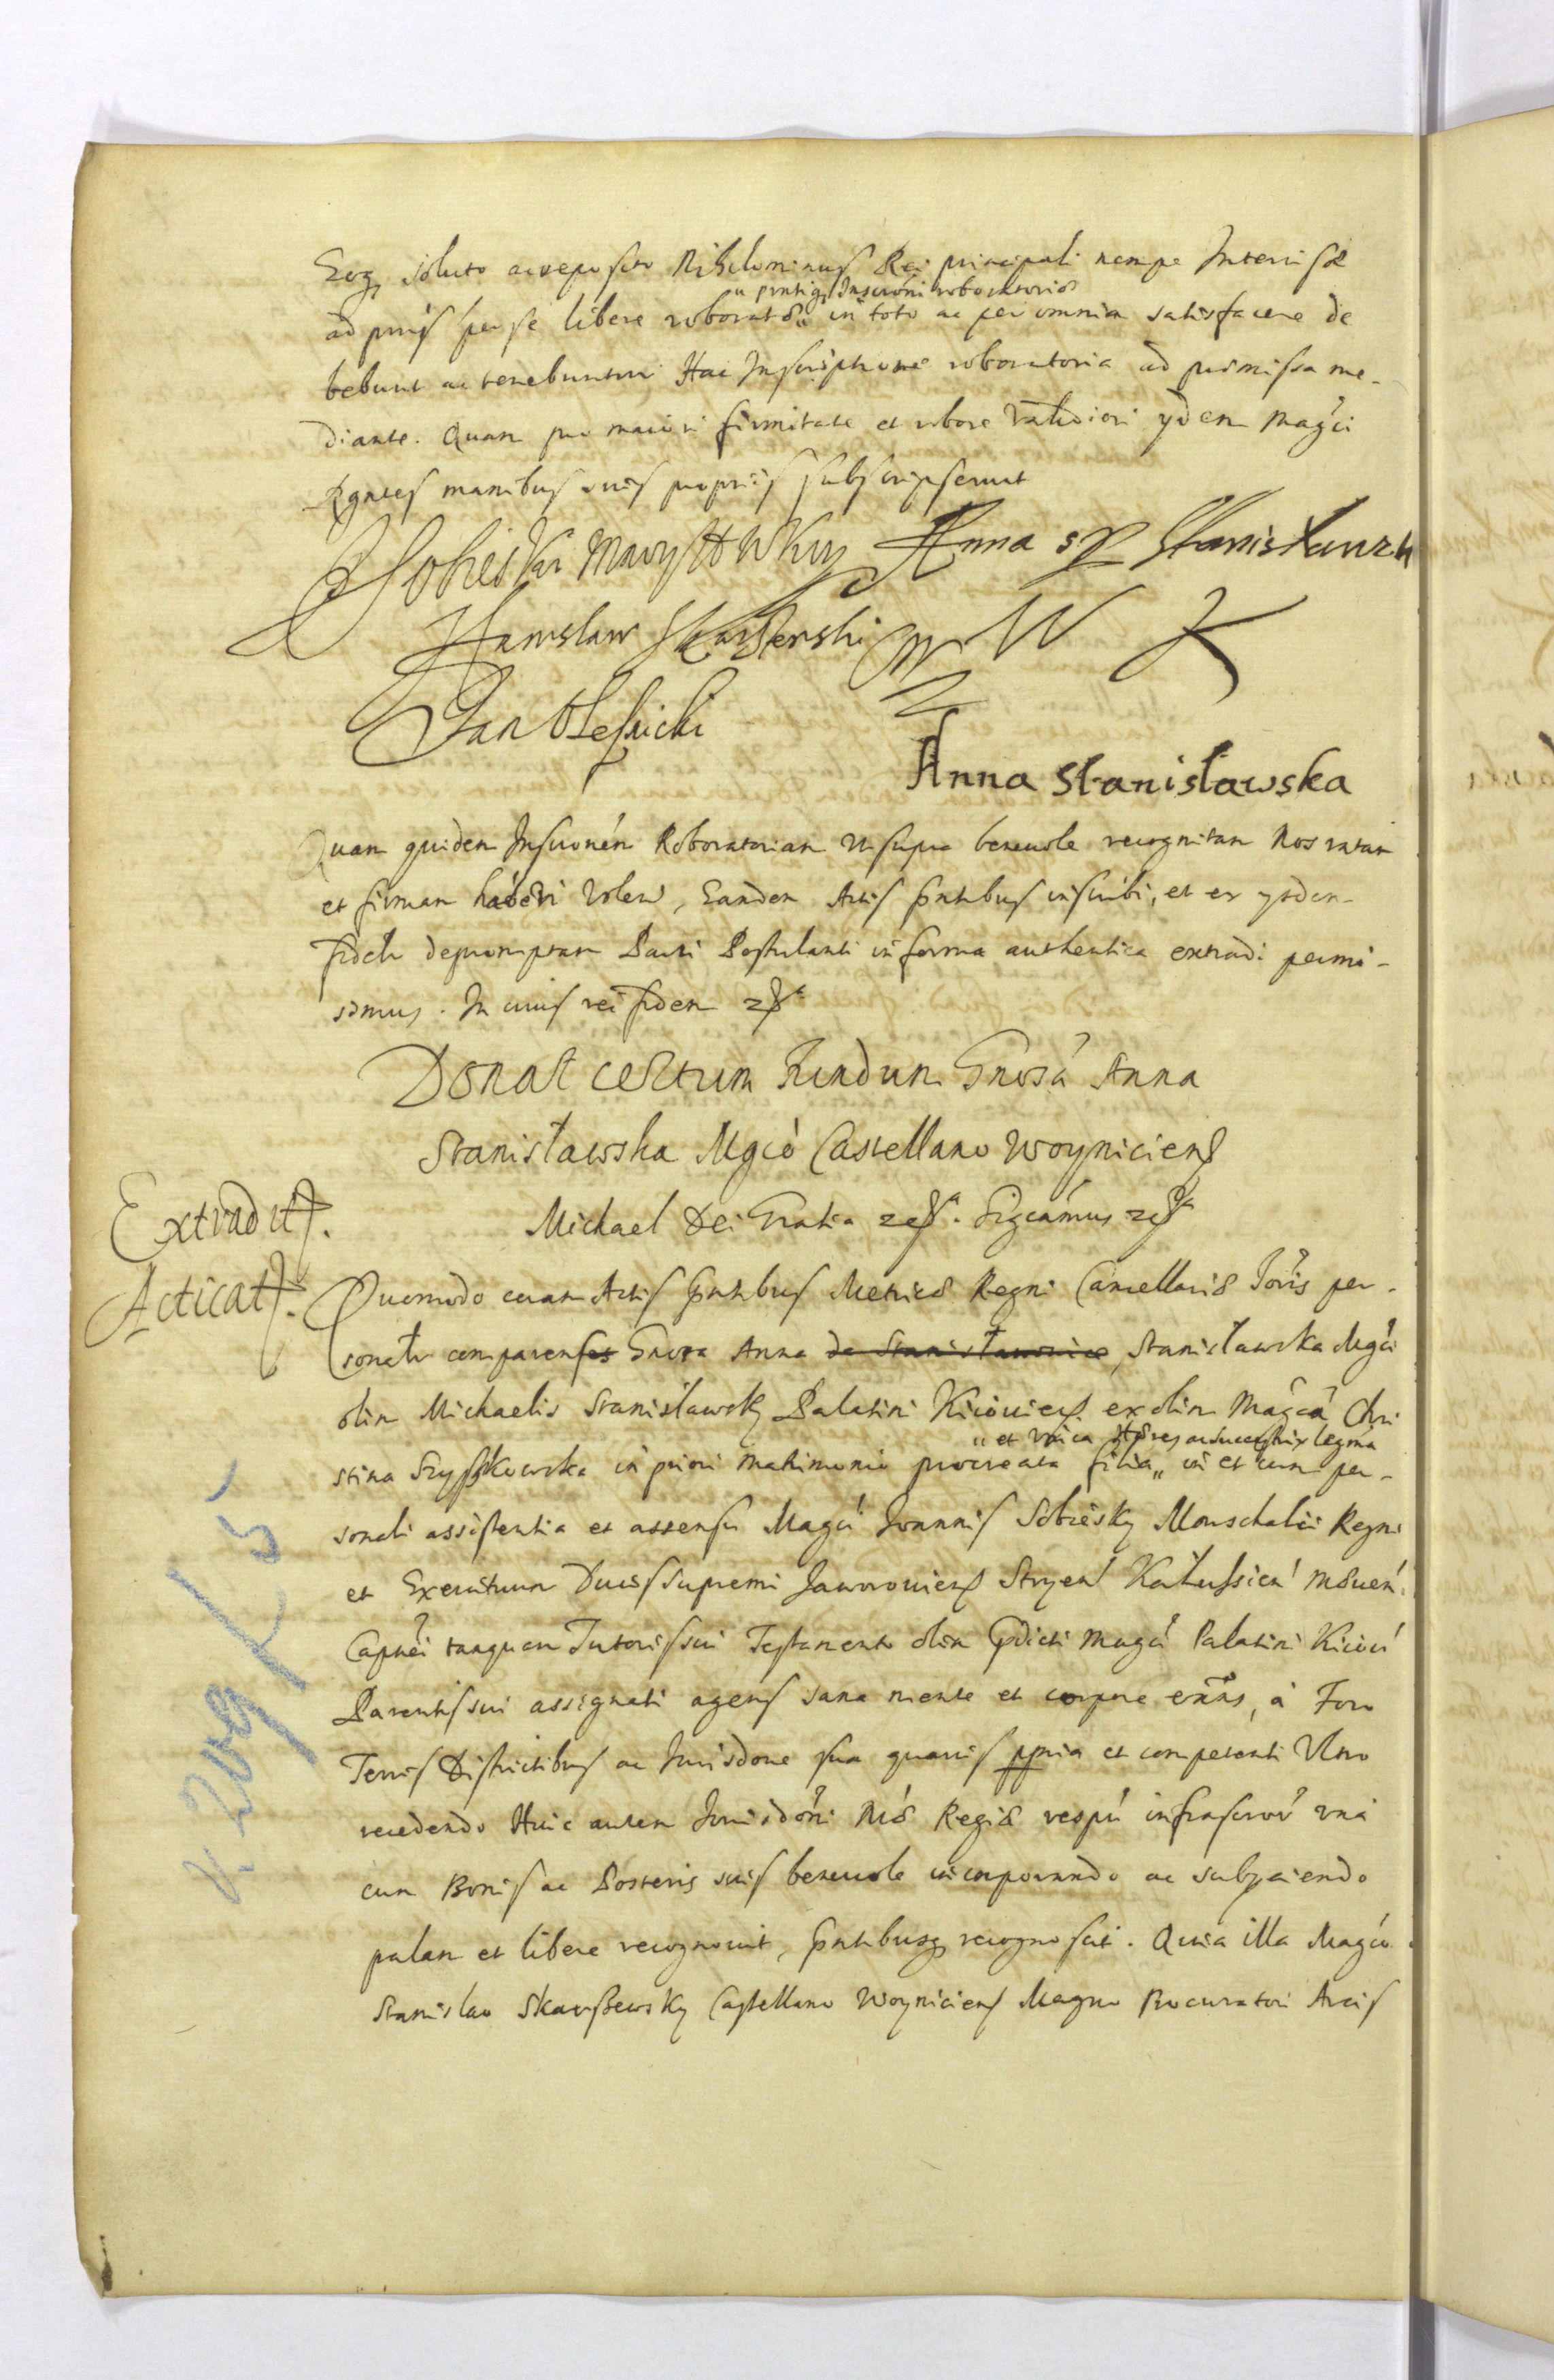 Eoq soluto ac reposito Nihilominus Rei principali nempe Intercisæ
u pntiq Inscrõni roboratoriæ
ad prius per se libere roboratæ " in toto ac per omnia satisfacere de
bebunt ac tenebuntur Hac Inscriptione roboratoria ad præmissa me-
diante. Quam pro maiori firmitate et robore validiori ydem Magci
Rgntes manibus suis proprijs subscripserunt
J Sobieski Marsz W Kor Anna z P Stanisławska
Stanislaw Skarszewski W K
Jan Olesnicki
Anna Stanisławska
Quam quidem Inscrionem Roboratoriam ut supra beneuole recognitam Nos ratam
et firmam haberi volen, Eandem Actis pntibus inscribi, et ex ysdem
fidelr depromptam Parti Postulanti in forma authentica extradi permi-
simus. In cuius rei fidem etc
Donat certum fundum Gnosa Anna
Stanisławska Mgco Castellano Woyniciens
Michael Dei Gratia etc. Sigcamus etc
Extradit.
Acticat.
Quomodo coram Actis pntibus Metrices Regni Cancellariæ Ioris per-
sonalr comparenses Gnosa Anna de Stanisławice, Stanisławska Mgci
olim Michaelis Stanisławsky Palatini Kiiouiens ex olim Magca Chri
" et vnica Hæres ac succestrix legma
stina Szyszkowska in priori matrimonio procreata filia " in et cum per-
sonali assistentia et assensu Magci Ioannis Sobiesky Marschalci Regni
et Exercituum Ducis supremi Jaworouiens Stryen Kałussien Msuen
Capnei tanquam Tutoris sui Testamento olim pdicti Magci Palatini Kiiou
Parentis sui assignati agens sana mente et corpore exns, a Foro
Terris Districtibus ac Iurisdone sua quauis ppria et competenti Vltro
recedendo Huic autem Iurisdoni Næ Regiæ respu infrascrov vna
cum Bonis ac Posteris suis beneuole incorporando ac subyciendo
palam et libere recognouit, pntibusq recognoscit. Quia illa Magco
Stanislao Skarszewsky Castellano Woyniciens Magno Procuratori Arcis